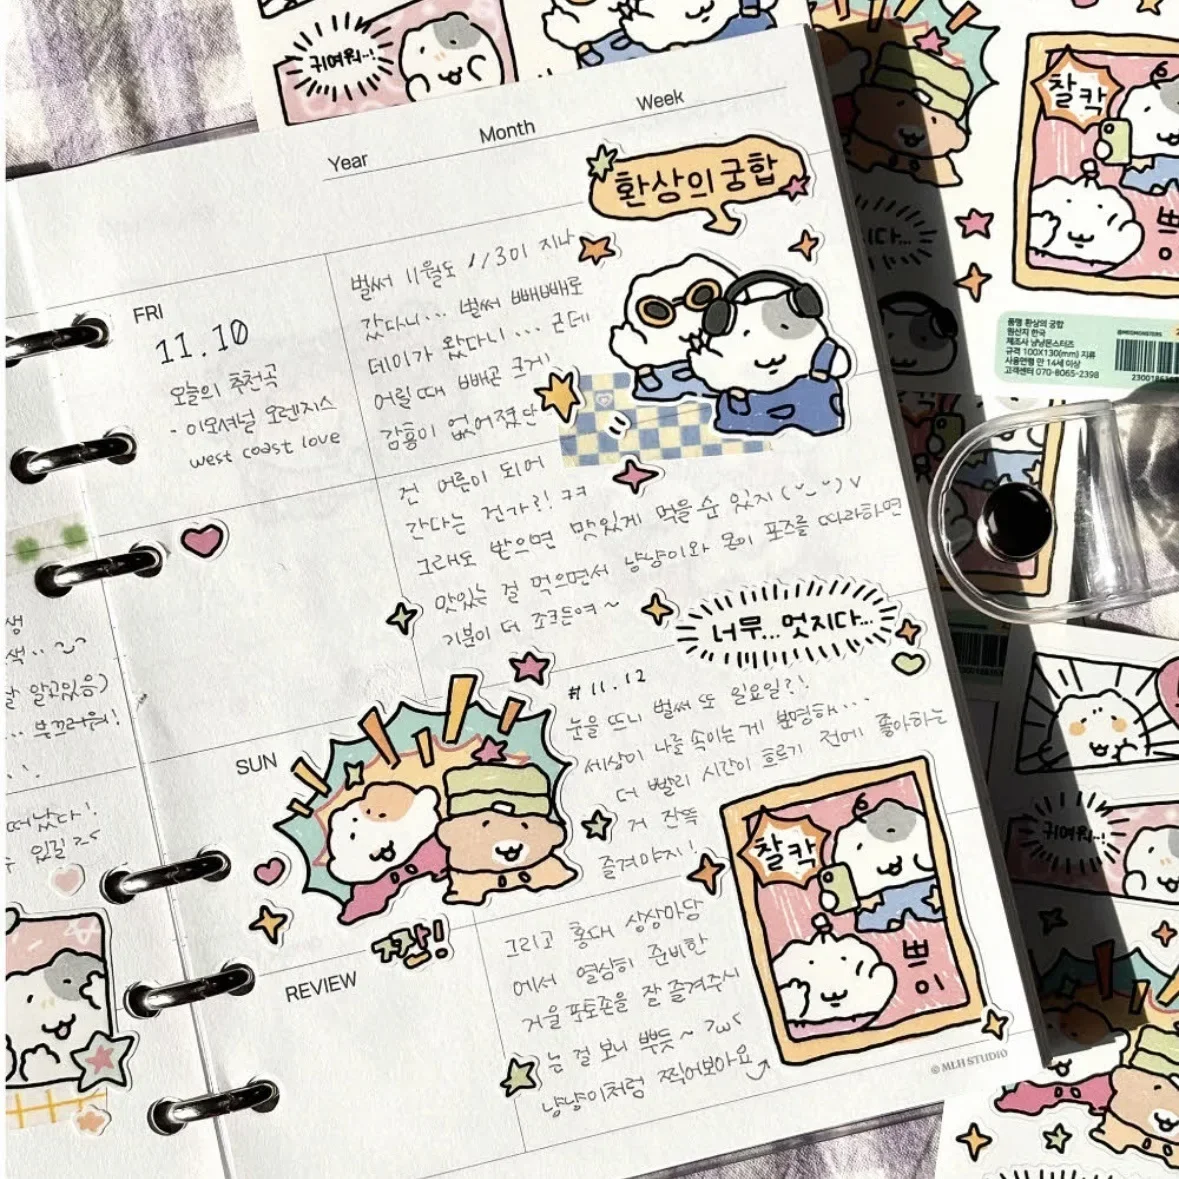 귀여워..!
Year
Month
Week
환상의 궁합
FRI
11.10
오늘의 추천곡
- 이모셔널 오렌지스
west coast love
벌써 11월도 1/3이 지나
갔다니... 벌써 빼빼로
데이가 왔다니... 근데
어릴 때 빼곤 크게
감흥이 없어졌단
건 어른이 되어
간다는 건가?! ㅋㅋ
그래도 받으면 맛있게 먹을 수 있지
맛있는 걸 먹으면서 냥냥이와 몬이 포즈를 따라하면
기분이 더 조크든여~
너무... 멋지다...
SUN
#11.12
눈을 뜨니 벌써 또 일요일?!
세상이 나를 속이는 게 분명해...
더 빨리 시간이 흐르기 전에 좋아하는
거 잔뜩
즐겨야지!
짠!
찰칵
쁘이
REVIEW
그리고 홍대 상상마당
에서 열심히 준비한
거울 포토존을 잘 즐겨주시
는 걸 보니 뿌듯~
냥냥이처럼 찍어보아요
© MLH STUDIO
알고있음)
부끄러워!
떠났다!
찰칵
쁘이
품명 환상의 궁합
원산지 한국
제조사 냥냥몬스터즈
규격 100X130(mm) 지류
사용연령 만 14세 이상
고객센터 070-8065-2398
귀여워..!